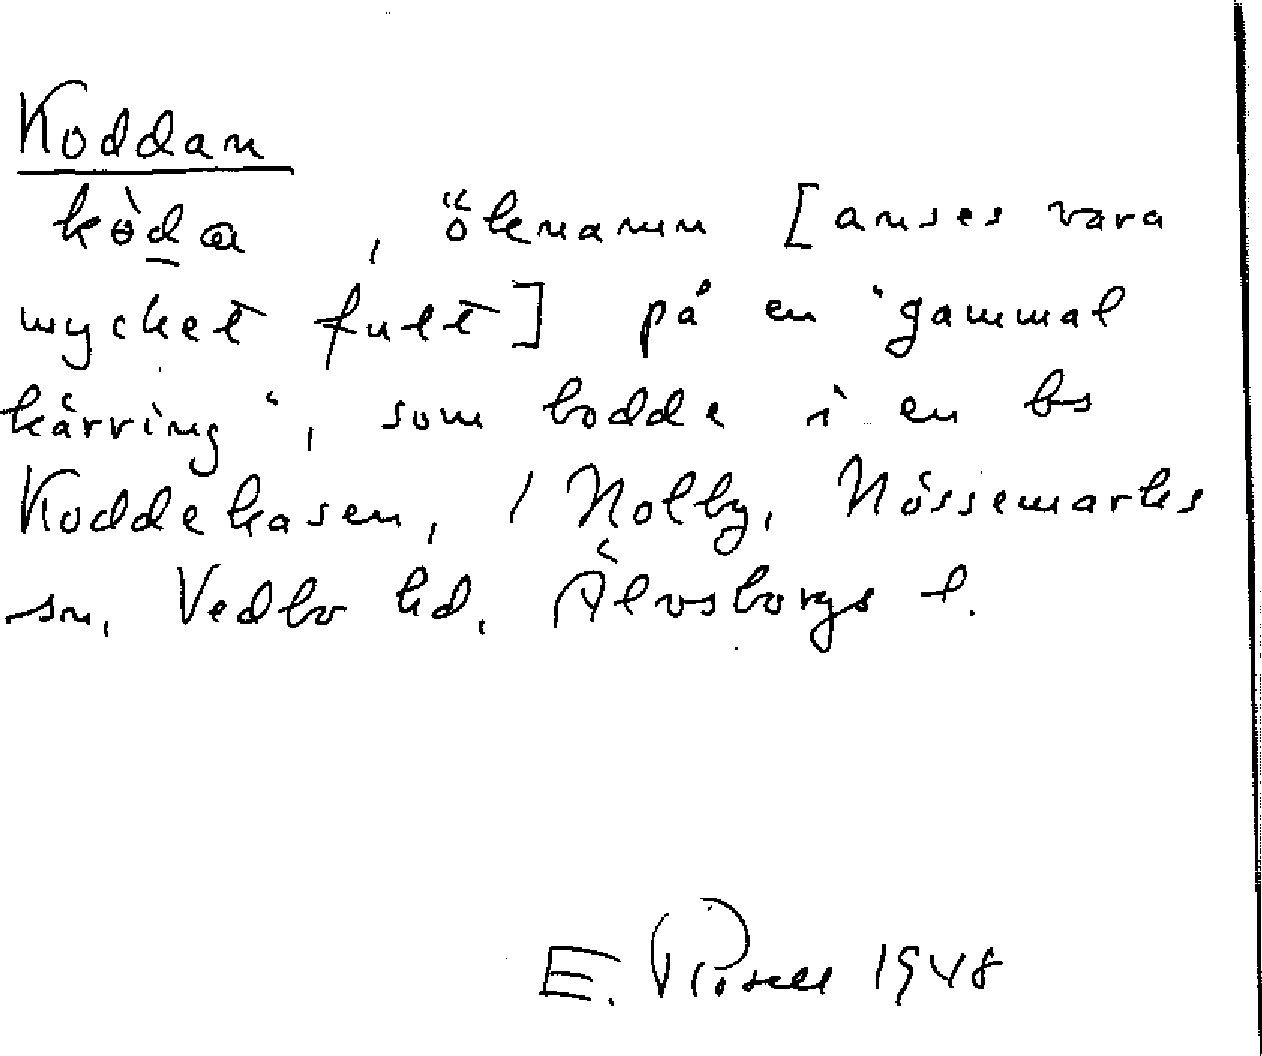 Koddan
kòda, öknamn [anses vara
mycket fult] på en "gammal
kärring", som bodde i en bs
Koddekasen, / Nolby, Nössemarks
sn, Vedbo hd, Älvsborgs l.
E. 1948